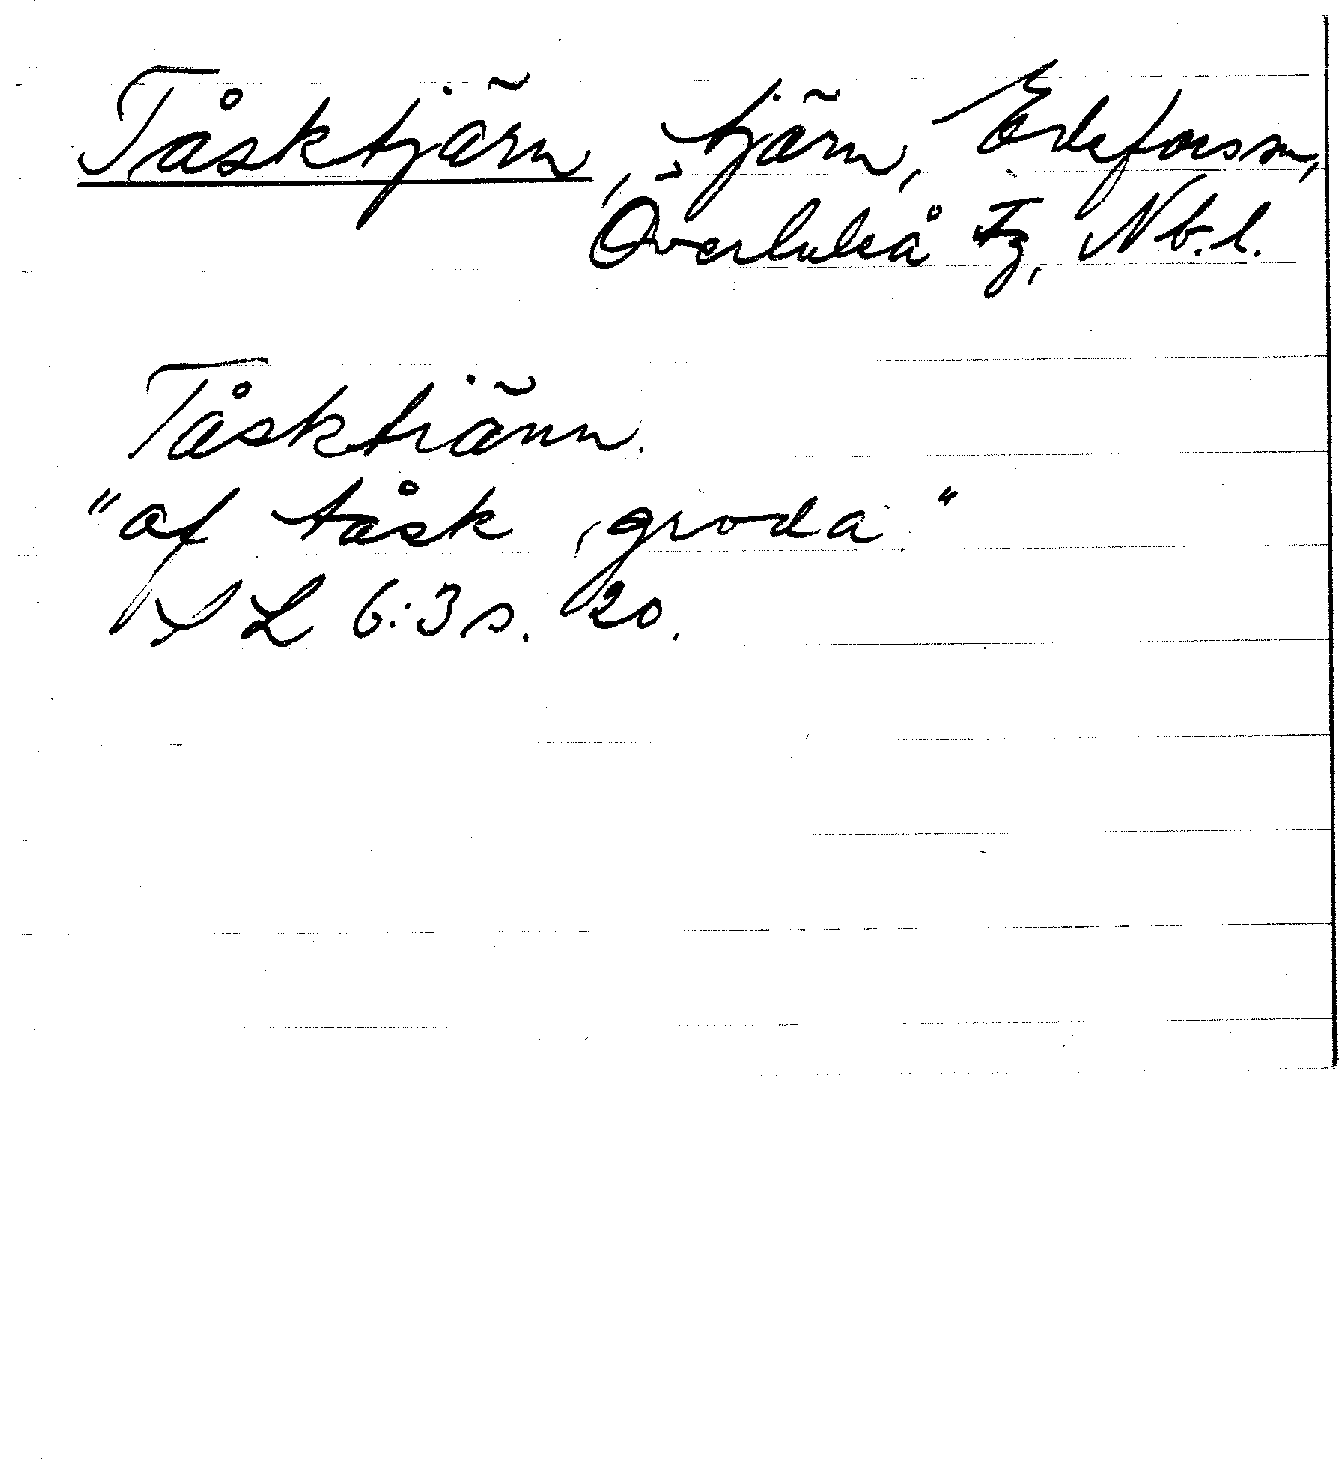 Tåsktjärn, tjärn, Edefors sn,
Överluleå tg, Nb. l.
Tåsktiänn.
"af tåsk, groda"
SL 6:3 s. 20.